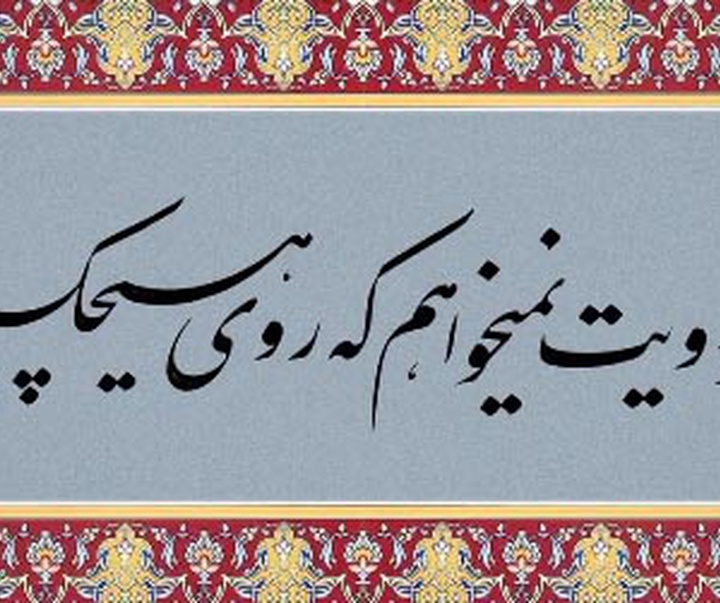 رویت نمیخواهم که روی هیچک